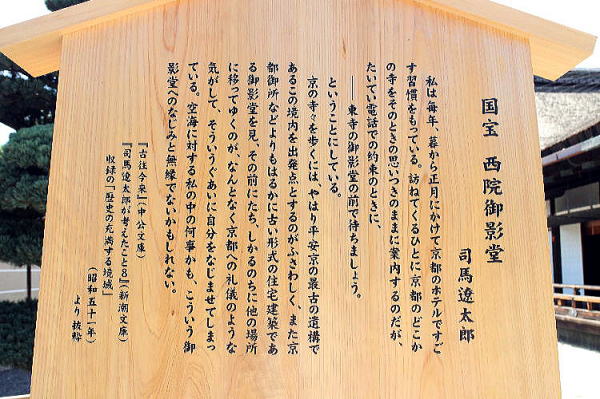 国宝 西院御影堂
司馬遼太郎
私は毎年、暮から正月にかけて京都のホテルですご
す習慣をもっている。訪ねてくるひとに京都のどこか
の寺をそのときの思いつきのままに案内するのだが、
たいてい電話での約束のときに、
――東寺の御影堂の前で待ちましょう。
ということにしている。
京の寺々を歩くには、やはり平安京の最古の遺構で
あるこの境内を出発点とするのがふさわしく、また京
都御所などよりもはるかに古い形式の住宅建築であ
る御影堂を見、その前にたち、しかるのちに他の場所
に移ってゆくのが、なんとなく京都への礼儀のような
気がして、そういうぐあいに自分をなじませてしまっ
ている。空海に対する私の中の何事かも、こういう御
影堂へのなじみと無縁でないかもしれない。
『古往今来』(中公文庫)
『司馬遼太郎が考えたこと8』(新潮文庫)
収録の「歴史の充満する境域」
(昭和五十一年)
より抜粋